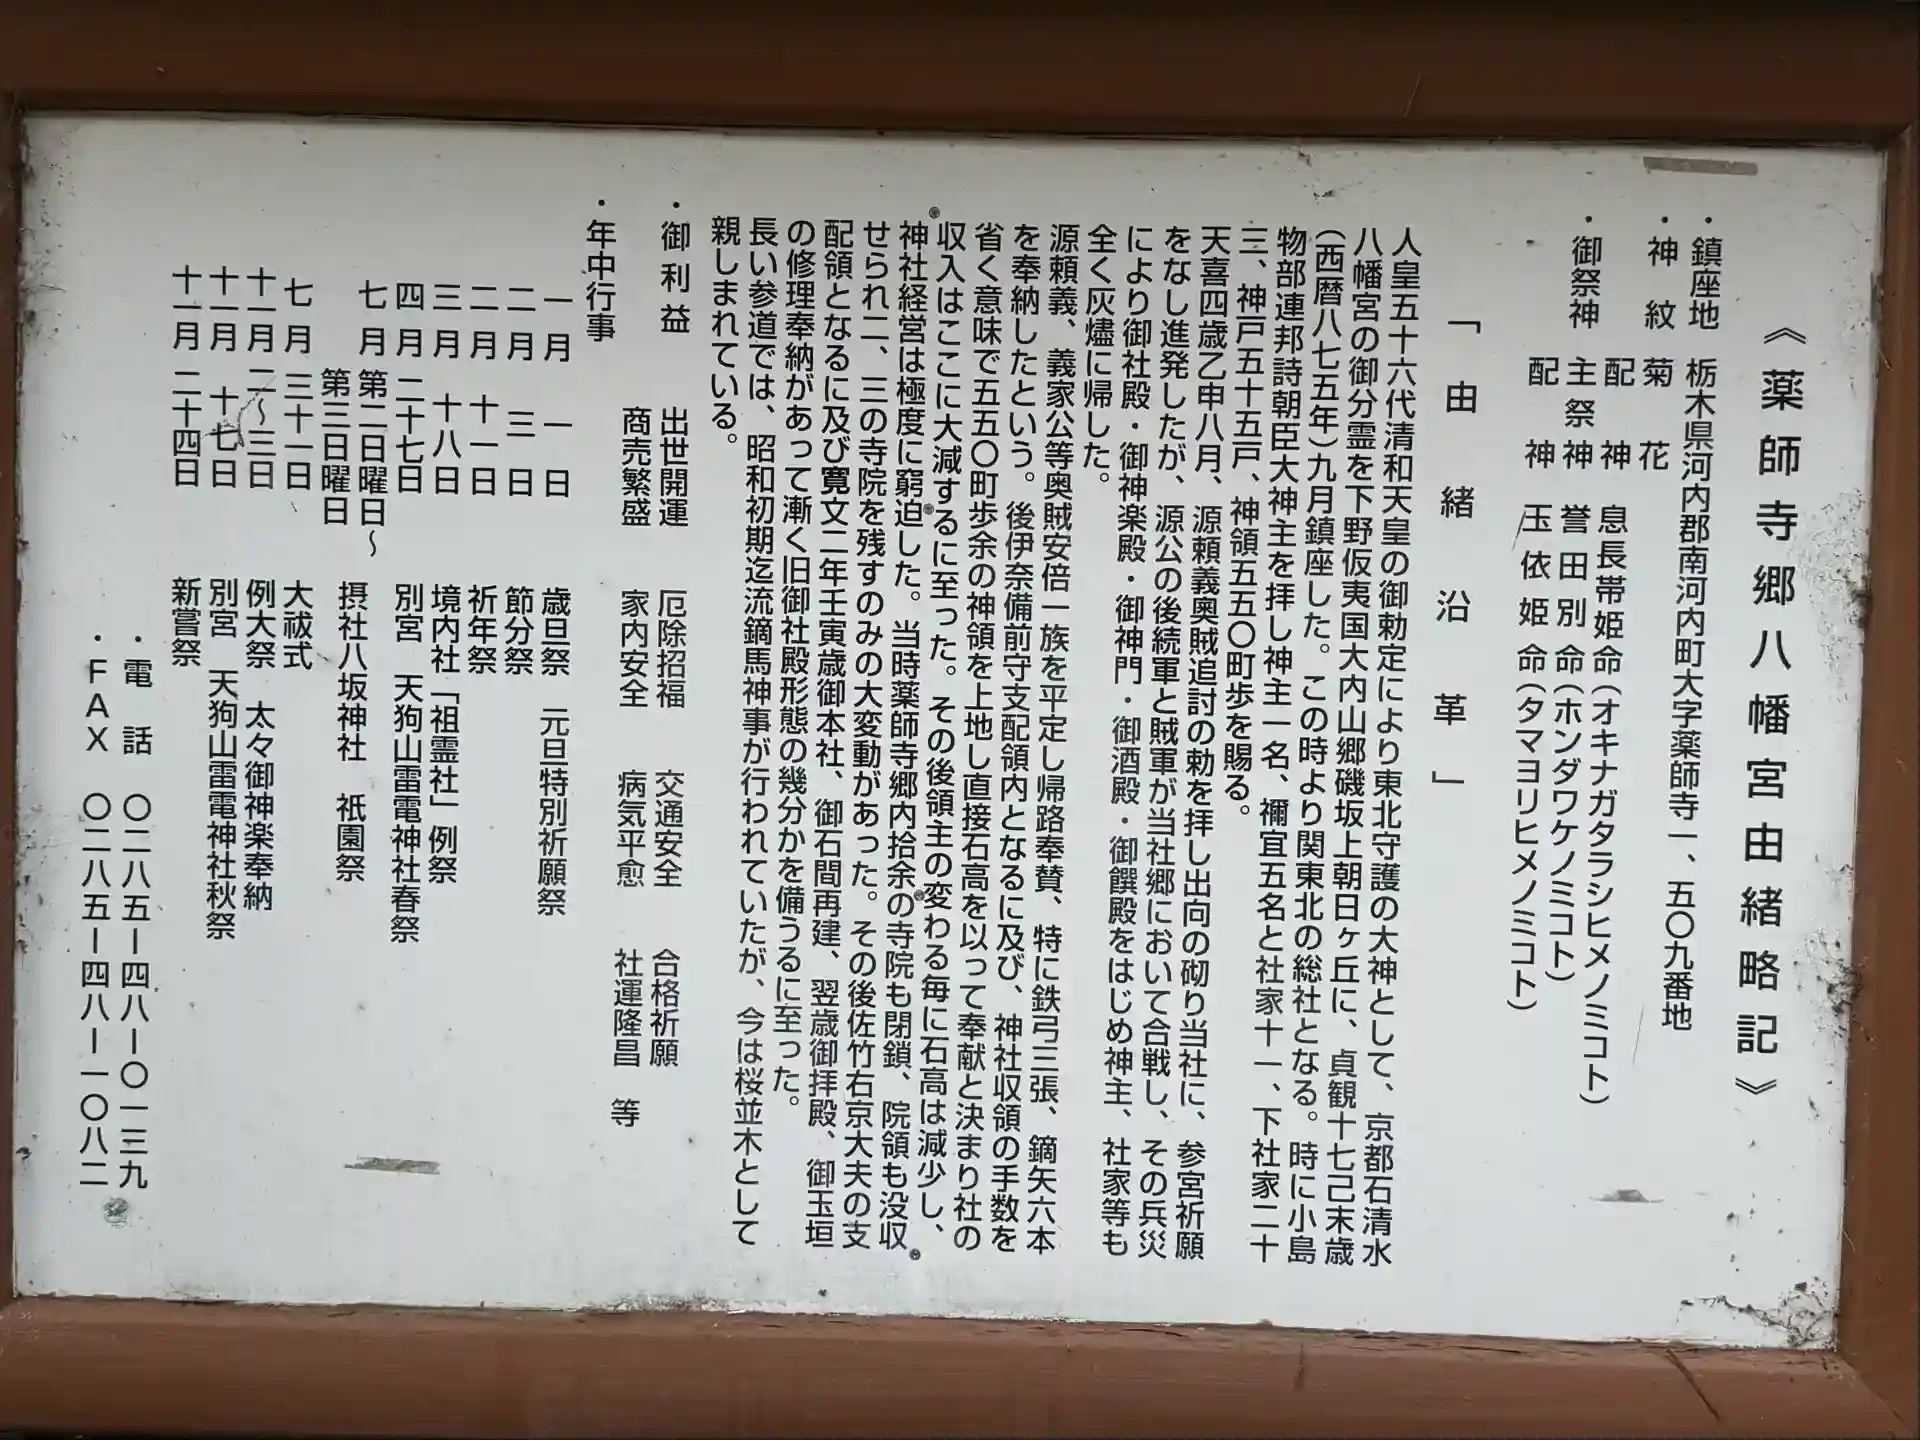 《薬師寺郷八幡宮由緒略記》
・鎮座地　栃木県河内郡南河内町大字薬師寺一、五〇九番地
・神紋　菊花
配神　息長帯姫命（オキナガタラシヒメノミコト）
・御祭神　主祭神　誉田別命（ホンダワケノミコト）
配神　玉依姫命（タマヨリヒメノミコト）
「由緒沿革」
人皇五十六代清和天皇の御勅定により東北守護の大神として、京都石清水
八幡宮の御分霊を下野仮夷国大内山郷磯坂上朝日ヶ丘に、貞観十七己末歳
（西暦八七五年）九月鎮座した。この時より関東北の総社となる。時に小島
物部連邦詩朝臣大神主を拝し神主一名、禰宜五名と社家十一、下社家二十
三、神戸五十五戸、神領五五〇町歩を賜る。
天喜四歳乙申八月、源頼義奥賊追討の勅を拝し出向の砌り当社に、参宮祈願
をなし進発したが、源公の後続軍と賊軍が当社郷において合戦し、その兵災
により御社殿・御神楽殿・御神門・御酒殿・御饌殿をはじめ神主、社家等も
全く灰燼に帰した。
源頼義、義家公等奥賊安倍一族を平定し帰路奉賛、特に鉄弓三張、鏑矢六本
を奉納したという。後伊奈備前守支配領内となるに及び、神社収領の手数を
省く意味で五五〇町歩余の神領を上地し直接石高を以って奉献と決まり社の
収入はここに大減するに至った。その後領主の変わる毎に石高は減少し、
神社経営は極度に窮迫した。当時薬師寺郷内拾余の寺院も閉鎖、院領も没収
せられ二、三の寺院を残すのみの大変動があった。その後佐竹右京大夫の支
配領となるに及び寛文二年壬寅歳御本社、御石間再建、翌歳御拝殿、御玉垣
の修理奉納があって漸く旧御社殿形態の幾分かを備うるに至った。
長い参道では、昭和初期迄流鏑馬神事が行われていたが、今は桜並木として
親しまれている。
・御利益　出世開運　厄除招福　交通安全　合格祈願
商売繁盛　家内安全　病気平愈　社運隆昌　等
・年中行事
一月　一日　歳旦祭　元旦特別祈願祭
二月　三日　節分祭
二月　十一日　祈年祭
三月　十八日　境内社「祖霊社」例祭
四月　二十七日　別宮　天狗山雷電神社春祭
七月　第二日曜日〜
第三日曜日　摂社八坂神社　祇園祭
七月　三十一日　大祓式
十一月　二〜三日　例大祭　太々御神楽奉納
十一月　十七日　別宮　天狗山雷電神社秋祭
十一月　二十四日　新嘗祭
・電話　〇二八五ー四八ー〇一三九
・ＦＡＸ　〇二八五ー四八ー一〇八二